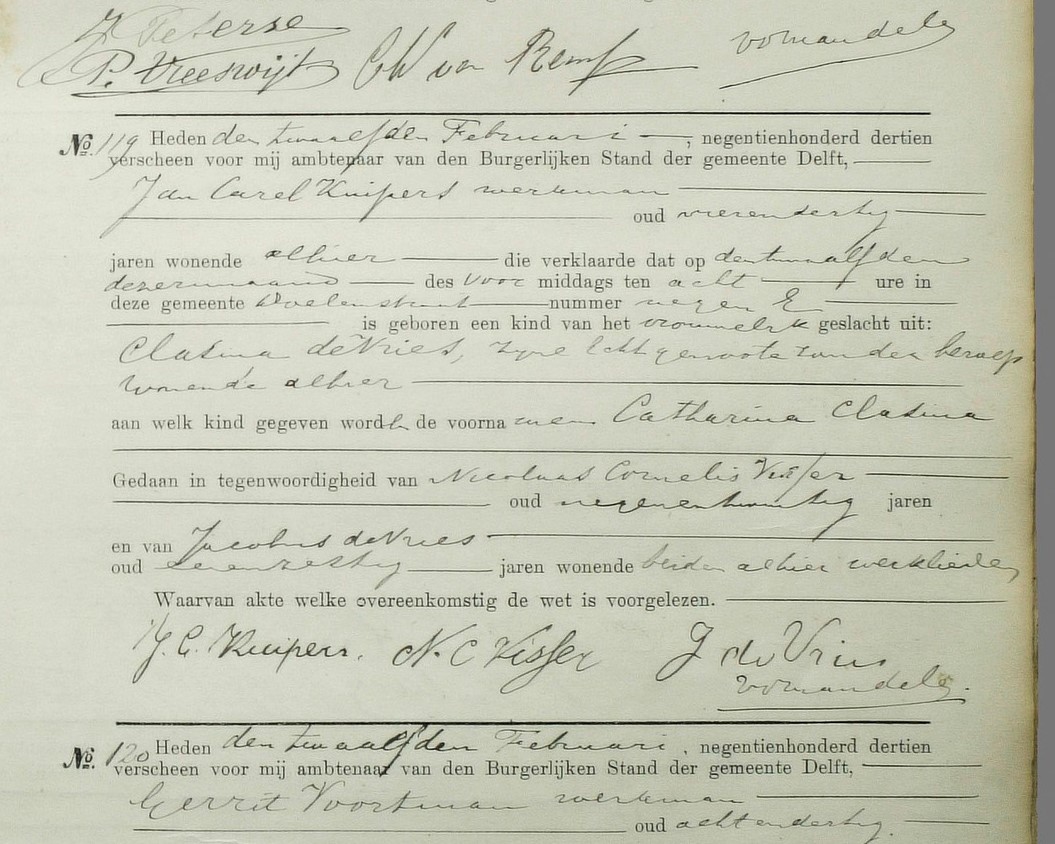 J Peterse
P. Vreeswijk CW van Vomandele
No. 119 Heden den twaalfden Februari, negentienhonderd dertien
verscheen voor mij ambtenaar van den Burgerlijken Stand der gemeente Delft,
Jan Carel Kuipers werkman
oud vierendertig
jaren wonende alhier die verklaarde dat op den twaalfden
dezer maand des voor middags ten acht ure in
deze gemeente Doelenstraat nummer negen E
is geboren een kind van het vrouwelijk geslacht uit:
Clasina de Vries, zijne echtgenoote zonder beroep
wonende alhier
aan welk kind gegeven wordt de voornamen Catharina Clasina
Gedaan in tegenwoordigheid van Nicolaas Cornelis Visser
oud negenentwintig jaren
en van Jacobus de Vries
oud zevenzestig jaren wonende beiden alhier werklieden
Waarvan akte welke overeenkomstig de wet is voorgelezen.
J. C. Kuipers. N. C Visser J de Vries
Vomandele.
No. 120 Heden den twaalfden Februari, negentienhonderd dertien
verscheen voor mij ambtenaar van den Burgerlijken Stand der gemeente Delft,
Gerrit Voortman werkman
oud achtendertig